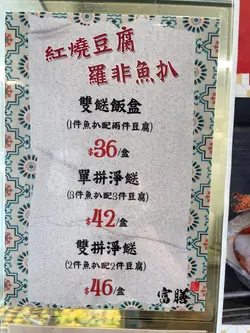 紅燒豆腐
羅非魚扒
雙餸飯盒
(1件魚扒配兩件豆腐)
$36/盒
單拼淨餸
(3件魚扒配3件豆腐)
$42/盒
雙拼淨餸
(2件魚扒配2件豆腐)
$46/盒
富勝